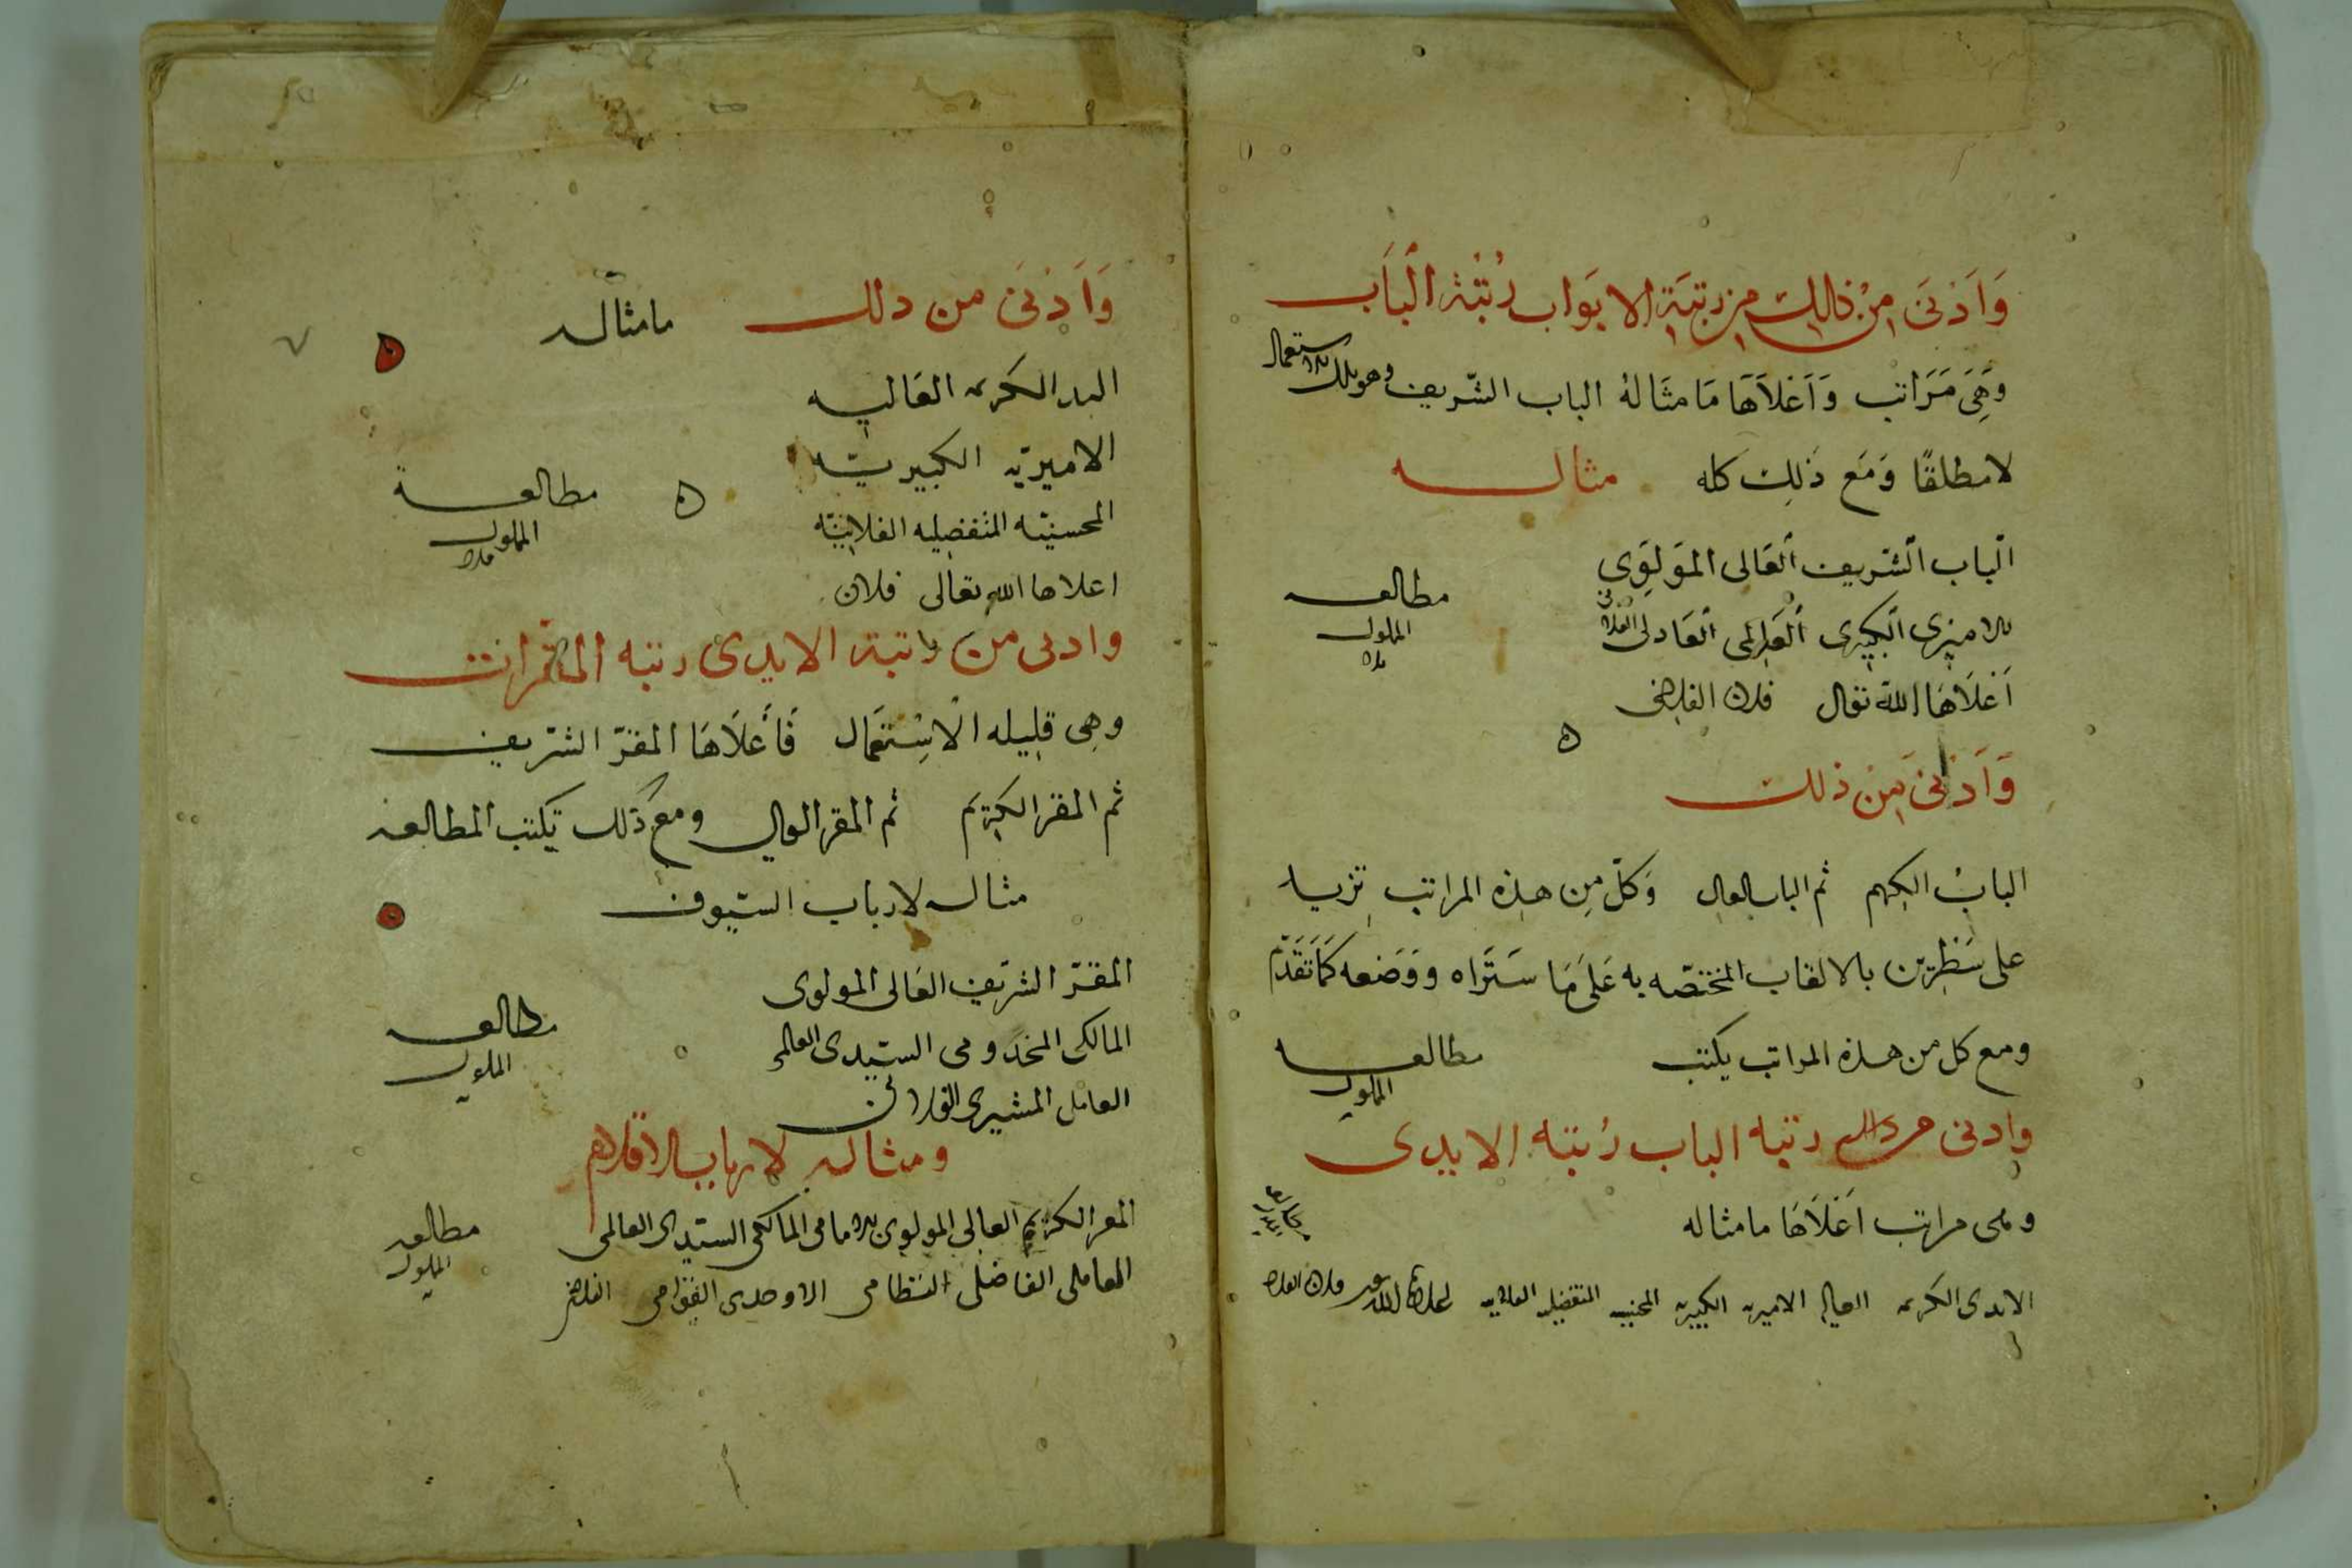 وَاَدْنَى مِنْ ذٰلِكَ مِن رتبَةِ الابوَاب رُتْبَة الْبَاَب
وَهِىَ مَرَاتب وَاَعْلاَهَا مَا مثَالهُ الباب الشّريف وهو بلا استعمال
لا مطلقًا وَمَع ذَلِك كله مثاله
الْباب الْشّريف اْلعَالى المَولَوِى
الاميرى الْكبيرى الْعَالمى الْعَادلى الفلانى
مطالعه
المملوك
فلان
اَعْلاَهَا اللهُ تعالى فلان الفلانى
وَاَدْنَى مِنْ ذلك
البابُ الكريم ثم الباب العالى وَكلّ مِن هذه المراتب تزيد
على سَطْرين بالالقاب المختصّه به عَلَى مَا سَتَراه وَوَضعه كَمَا تَقَدّم
ومع كل من هذه المراتب يكتب مطالعه
المملوك
وادنى من ذلك رتبه الباب رُتبَه الايدى
وهى مراتب اَعْلاَهَا ما مثاله
الايدى الكريمه العاليه الاميريه الكبيريه المحسنيه المتفضليه الفلانيه اعلاها الله تعالى فلان الفلانى
وَاَدْنَى من دلك ما مثاله
اليد الكريمه العَاليه
الاميريّه الكبيريّه
المحسنيّه المتفضليه الفلانيّه
مطالعة
المملوك
فلان
اعلاها الله تعالى فلان
وادنى من رتبة الايدى رتبه المقرات
وهى قليله الاسْتِعمَال فَأَعلاَهَا المقرّ الشّريف
ثم المقر الكَريَم ثم المقر العالى ومع ذَلك تكتب المطالعه
مثاله لارباب السّيوف
المقرّ الشّريف العَالى المولوى
المالكى المخدومى السّيدى العالمى
العاملى المشيرى الفلانى
مطالعه
المملوك
ومثاله لارباب الاقلام
المقر الكريم العالى المولوى الامامى المالكى السيّدى العالمى
العاملى الفاضلى النظامى الاوحدى القوامى الفلانى
مطالعه
المملوك